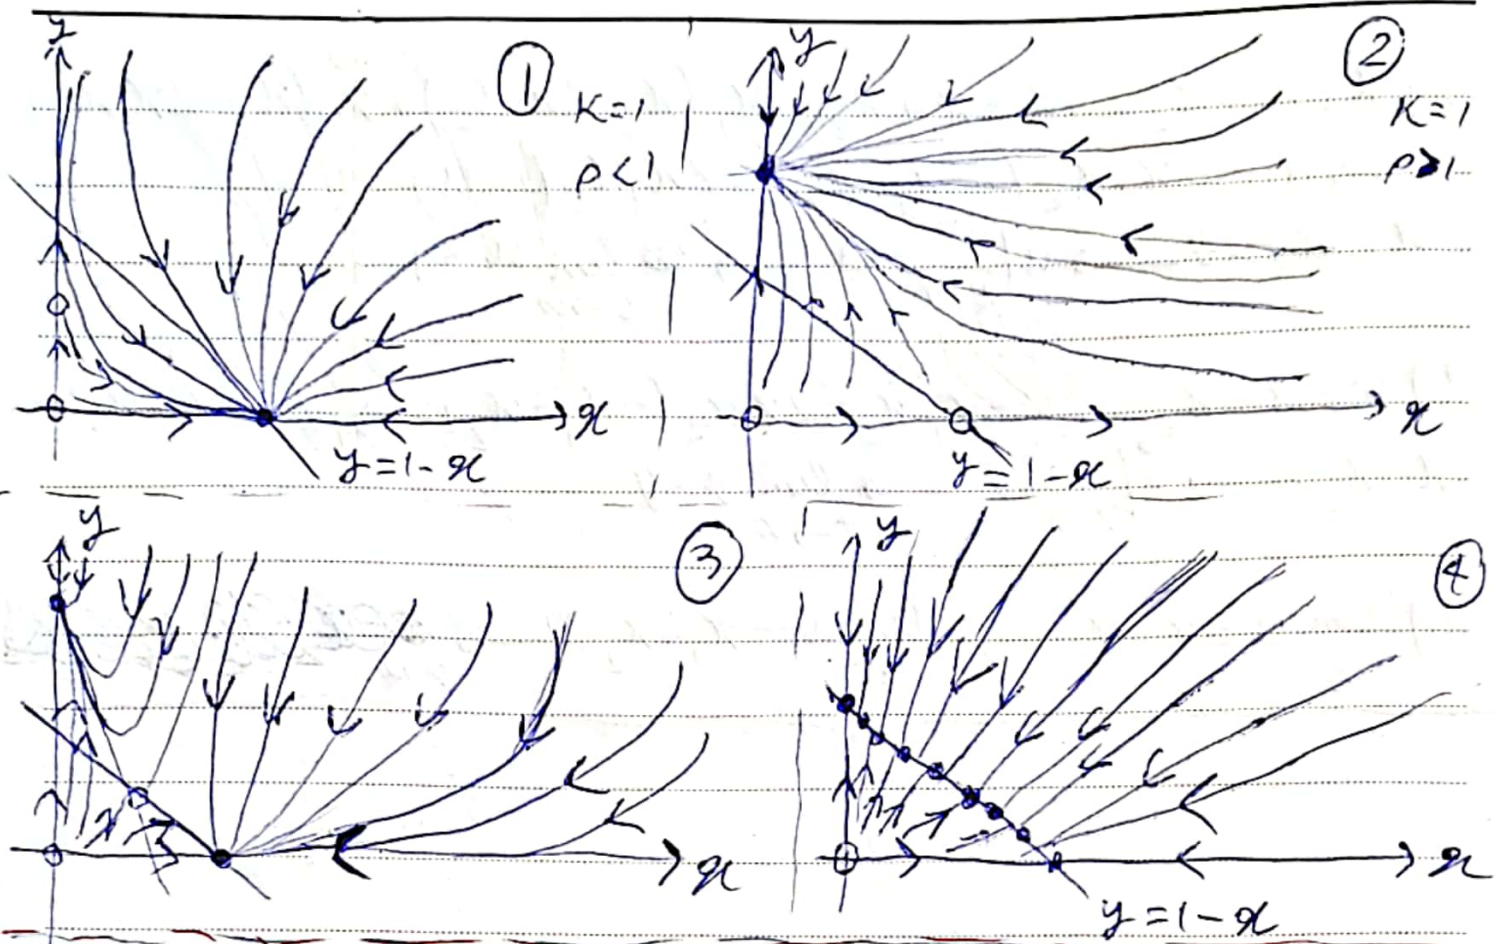 y
①
K=1
ρ<1
x
y=1-x
y
②
K=1
ρ>1
x
y=1-x
y
③
x
y
④
x
y=1-x